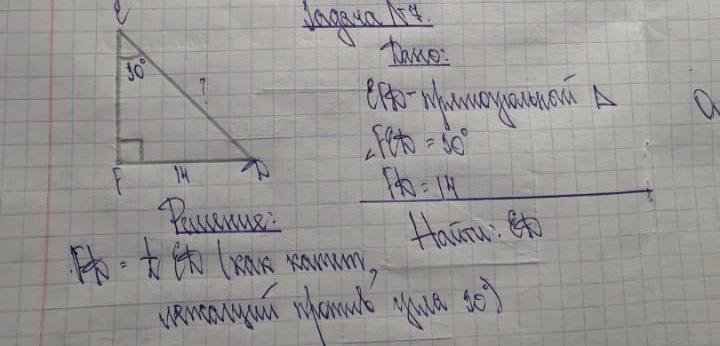 Задача №7.
Дано:
EFD - прямоугольный Δ
∠FED = 30°
FD = 14
Найти: ED
E
30°
?
F
14
D
Решение:
FD = ½ ED (как катет,
лежащий против угла 30°)